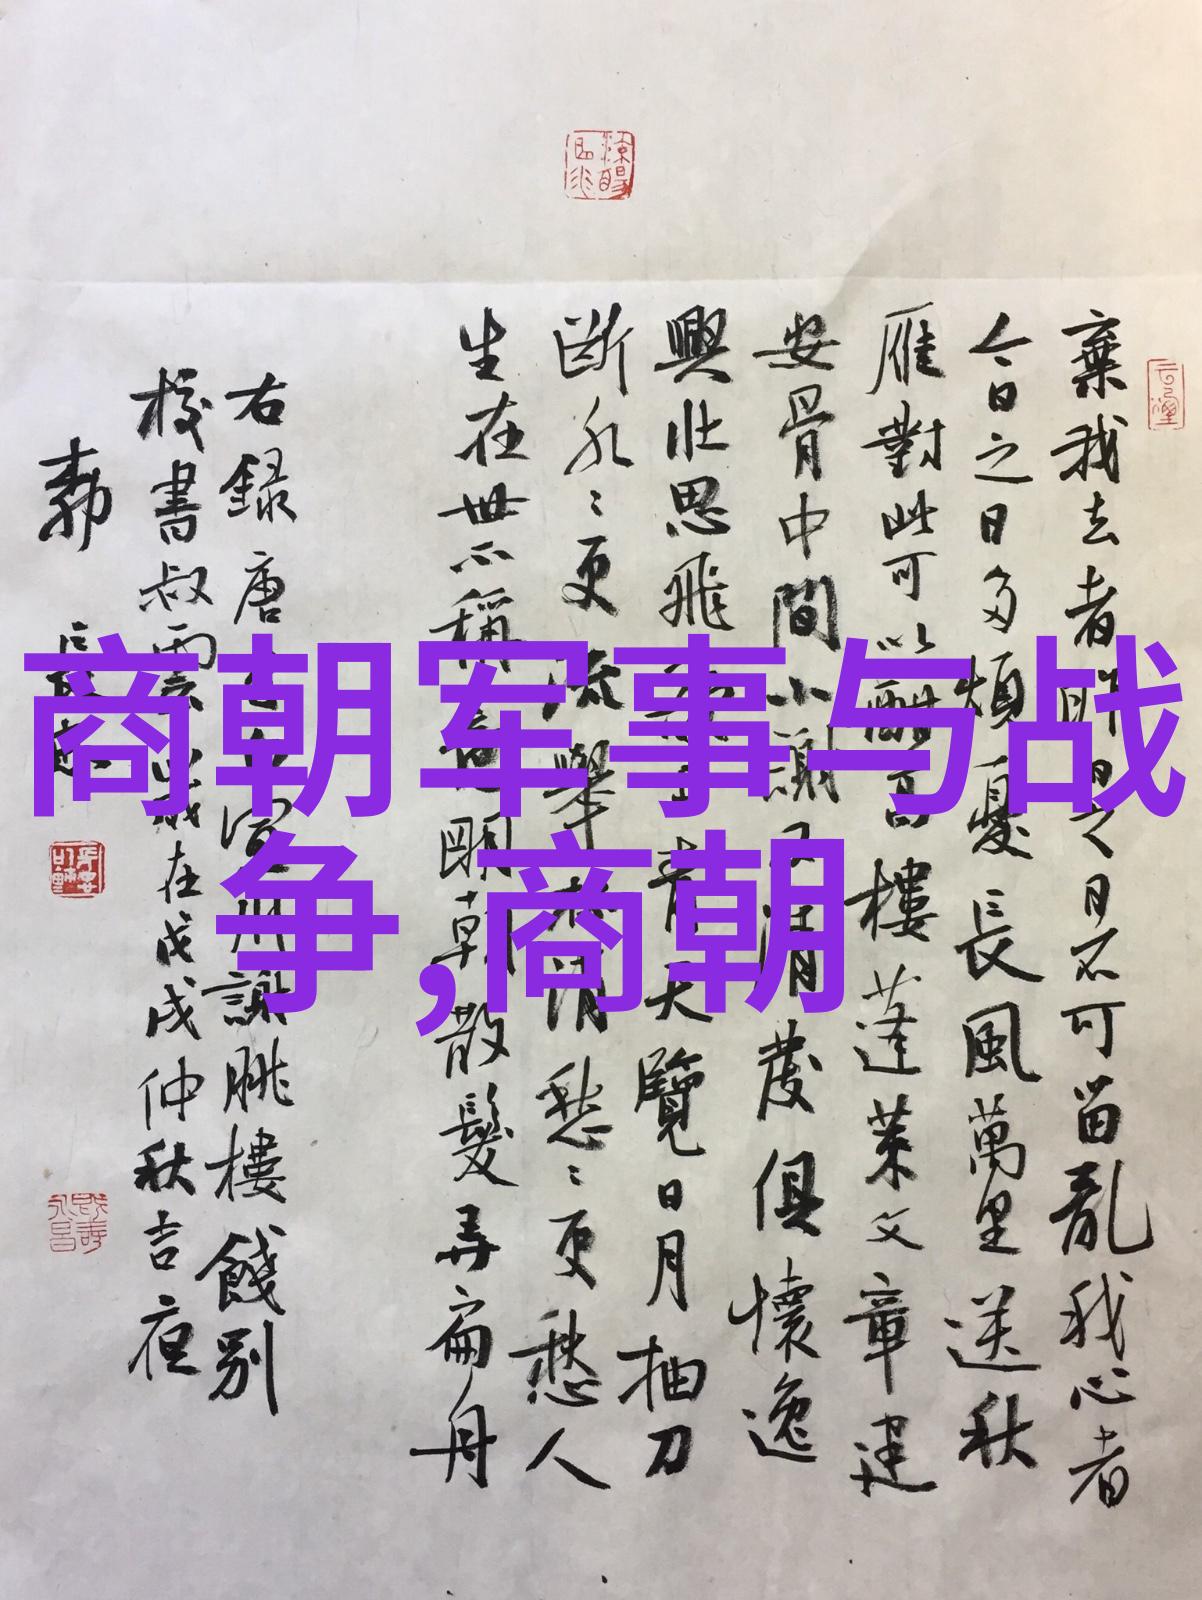 商朝军事与战
争,商朝
棄我去者昨日之日不可留亂我心者
今日之日多煩憂長風萬里送秋
雁對此可以酣高樓蓬萊文章建
安骨中間小謝清發俱懷逸
興壯思飛青天覽日月抽刀
斷水〻更流舉杯消愁〻更愁人
生在世不稱意明朝散髮弄扁舟
右録唐宣州謝朓樓餞別
校書叔雲歲在戊戌仲秋吉夜